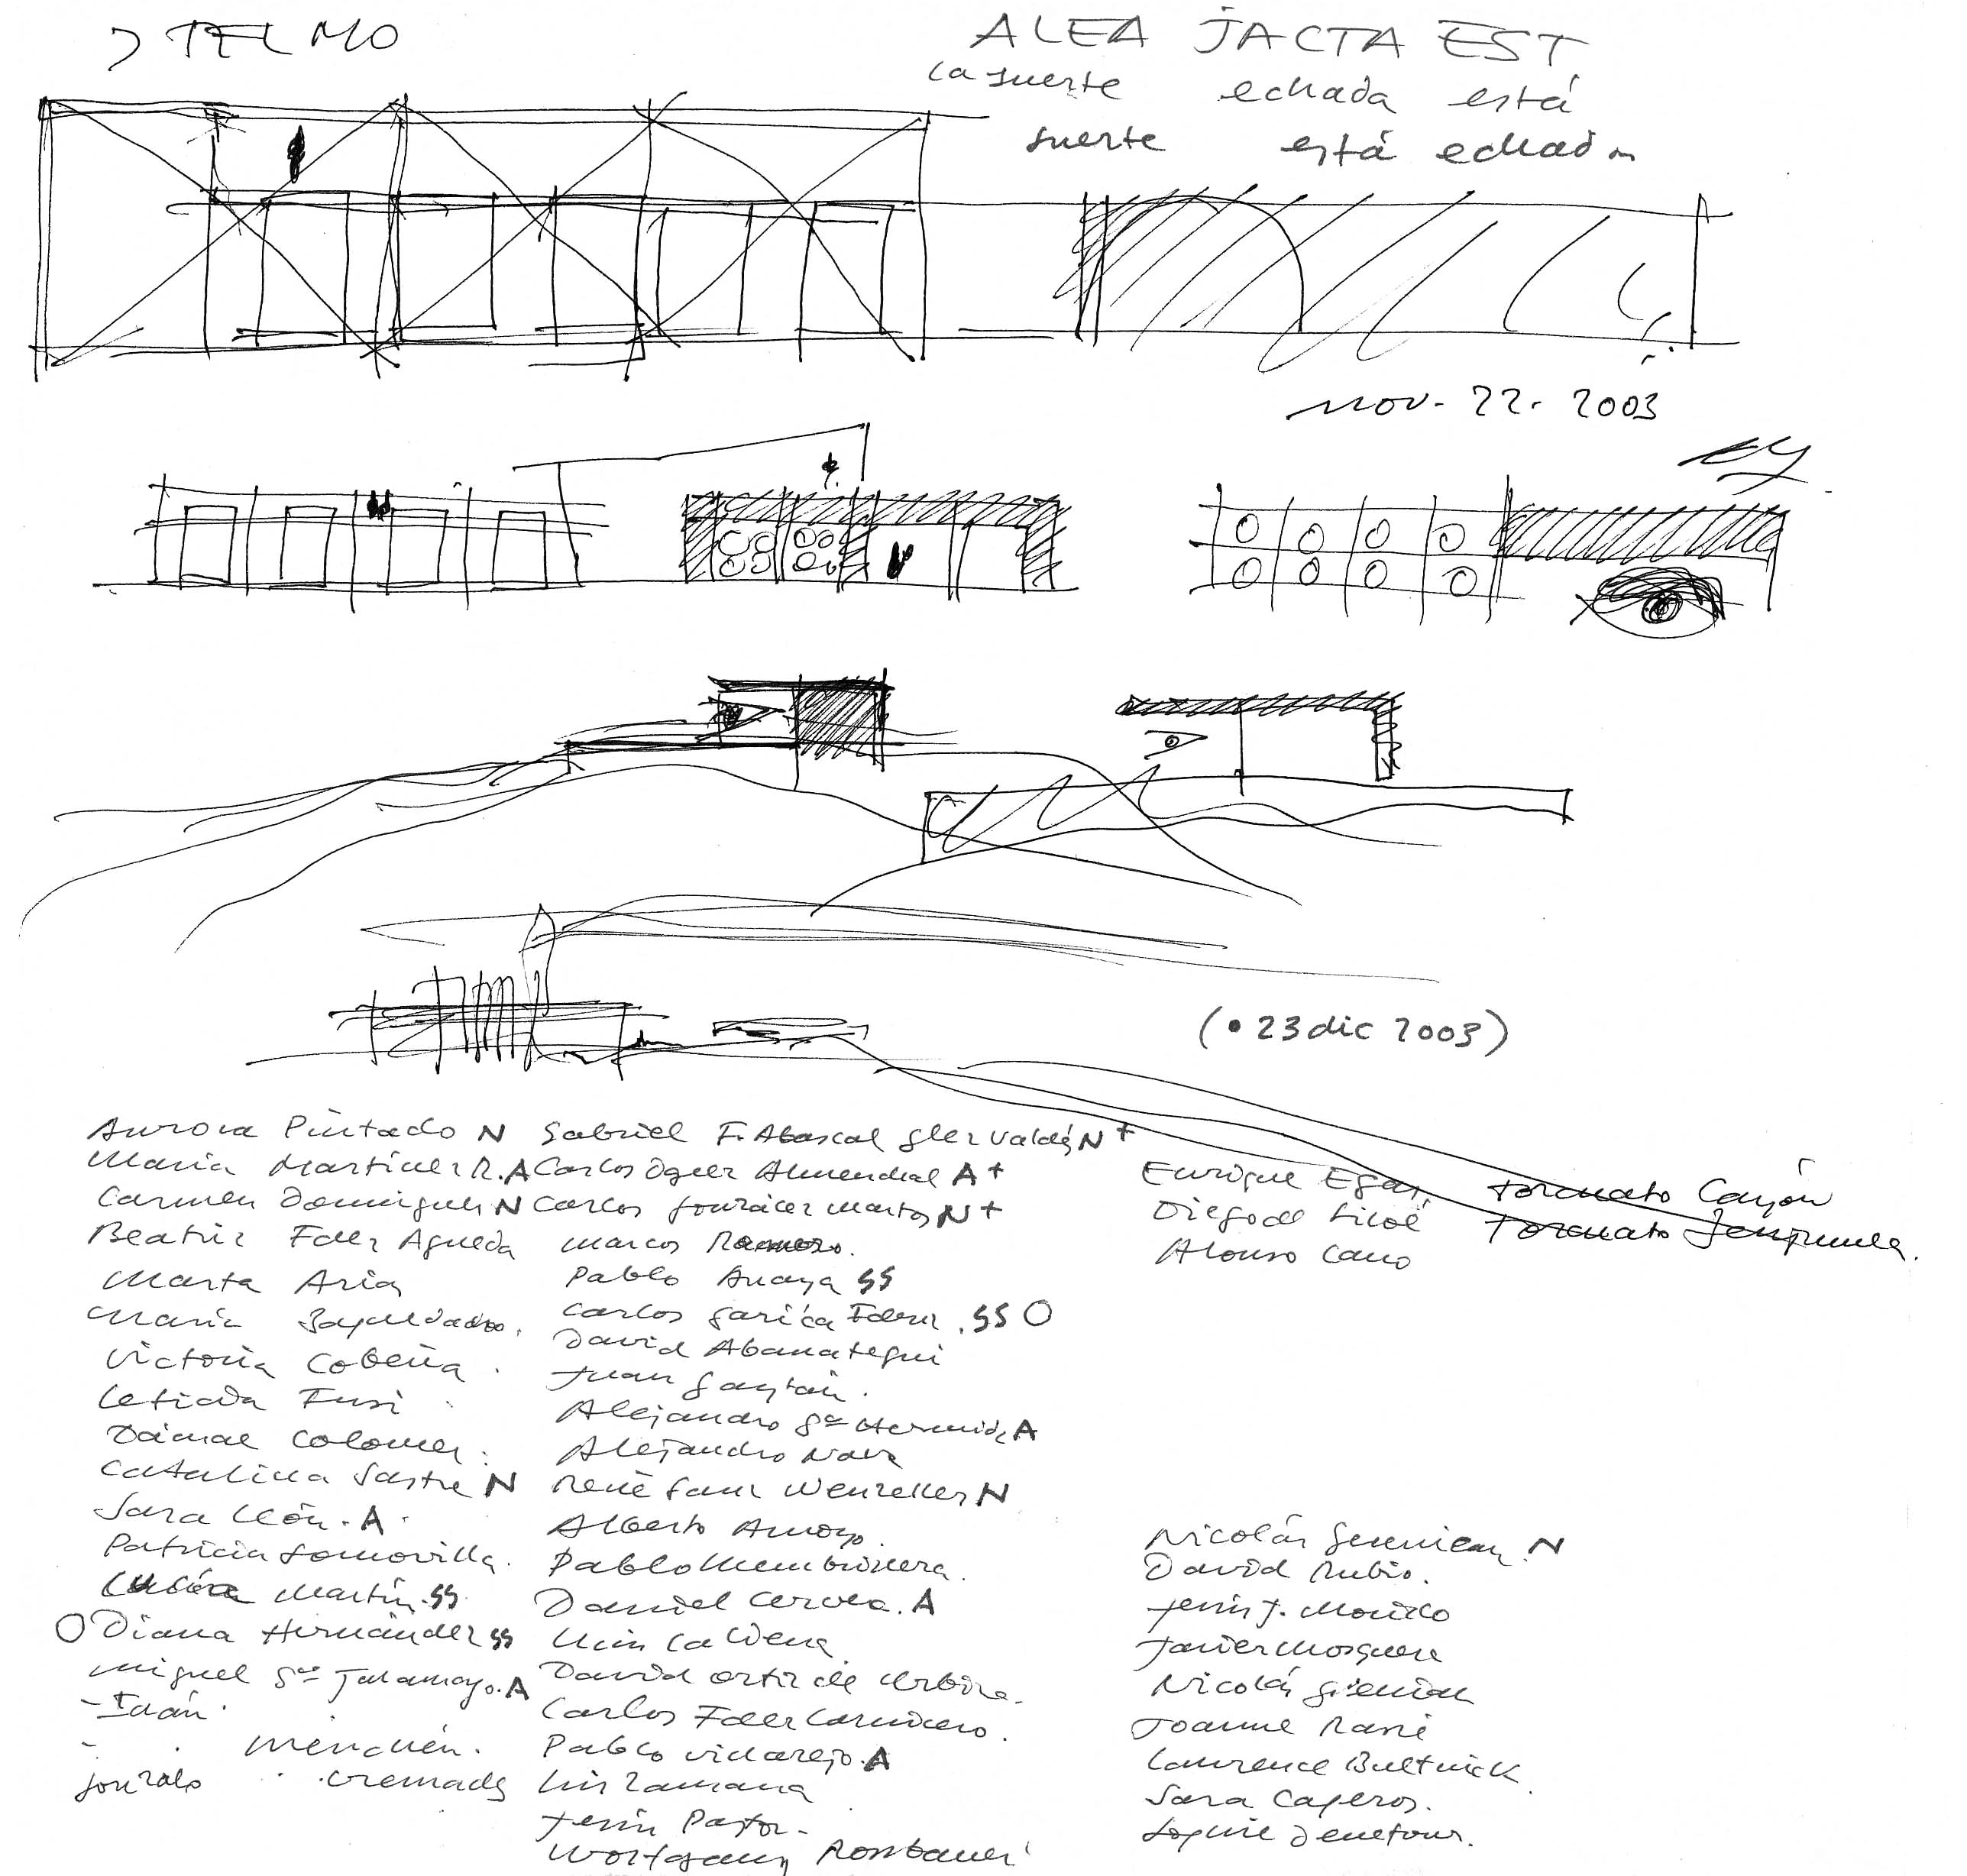 TELMO
ALEA JACTA EST
la suerte echada está
suerte está echada
nov. 22. 2003
(• 23 dic 2003)
Aurora Pintado N
María Martínez R. A
Carmen Domínguez N
Beatriz Fdez Agueda
Marta Arias
María
Victoria Cobeña
Leticia Fusi
Colomer
Catalina Sastre N
Sara León. A
Patricia Somovilla.
Martín. SS
O Diana Hernández SS
Miguel Gª A
- Iván
- Menchén.
Gonzalo Cremades
Gabriel F. Abascal Glez Valdés N +
Carlos Almendral A +
Carlos González Martos N +
Marcos Romero.
Pablo Anaya SS
Carlos García Fdez. SS O
David Abanategui
Juan Gaytán.
Alejandro Gª Hermida A
Alejandro
René N
Alberto Arroyo
Pablo Membrillera.
Daniel Cervera. A
David Ortiz de Urbina.
Carlos Fdez Carnicero.
Pablo Villarejo. A
Luis
Pastor.
Wolfgang
Enrique Egas.
Diego de Siloé
Alonso Cano
Torcuato Cayón
Torcuato
Nicolás N
David Rubio.
J. Morillo
Javier Mosquera
Nicolás
Joanne
Laurence Bultinck
Sara Cageros.